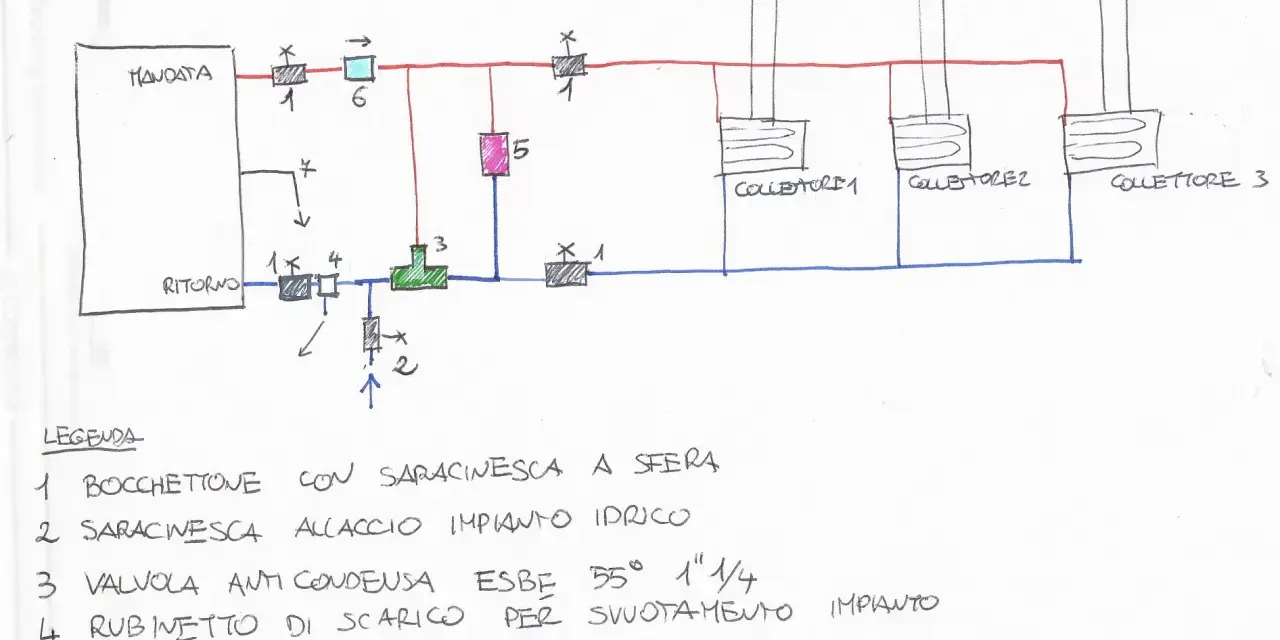 MANDATA
1
6
1
5
COLLETTORE 1
COLLETTORE 2
COLLETTORE 3
7
3
1
4
1
RITORNO
2
LEGENDA
1 BOCCHETTONE CON SARACINESCA A SFERA
2 SARACINESCA ALLACCIO IMPIANTO IDRICO
3 VALVOLA ANTICONDENSA ESBE 55° 1" 1/4
4 RUBINETTO DI SCARICO PER SVUOTAMENTO IMPIANTO